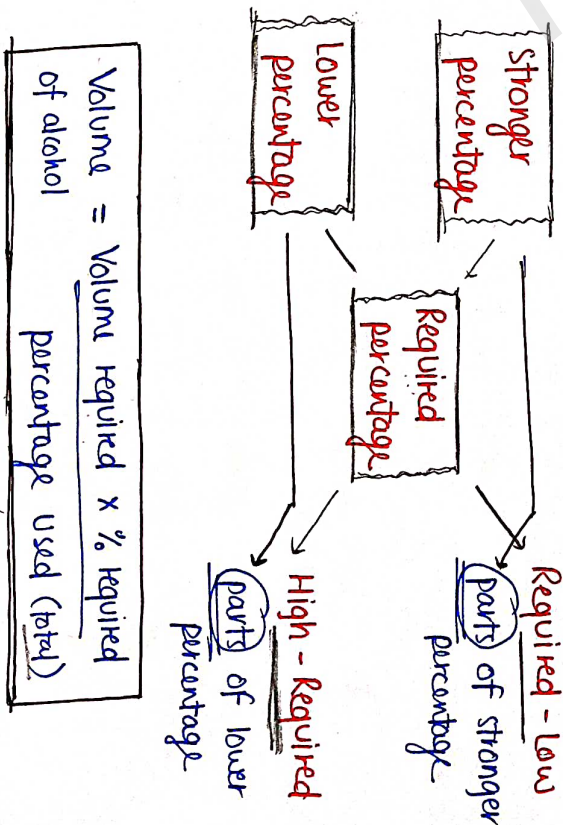 Stronger
percentage
Lower
percentage
Required
percentage
Required - Low
parts of stronger
percentage
High - Required
parts of lower
percentage
Volume = Volume required x % required
of alcohol percentage used (total)